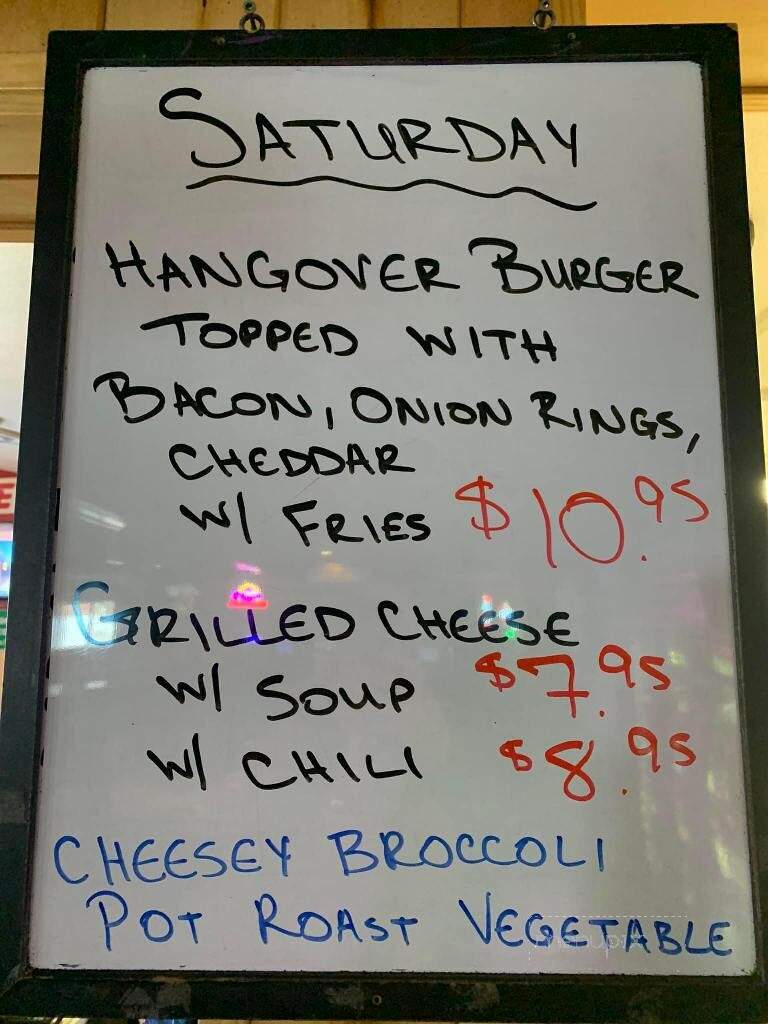 SATURDAY
HANGOVER BURGER
TOPPED WITH
BACON, ONION RINGS,
CHEDDAR
W/ FRIES $10.95
GRILLED CHEESE
W/ SOUP $7.95
W/ CHILI $8.95
CHEESEY BROCCOLI
POT ROAST VEGETABLE